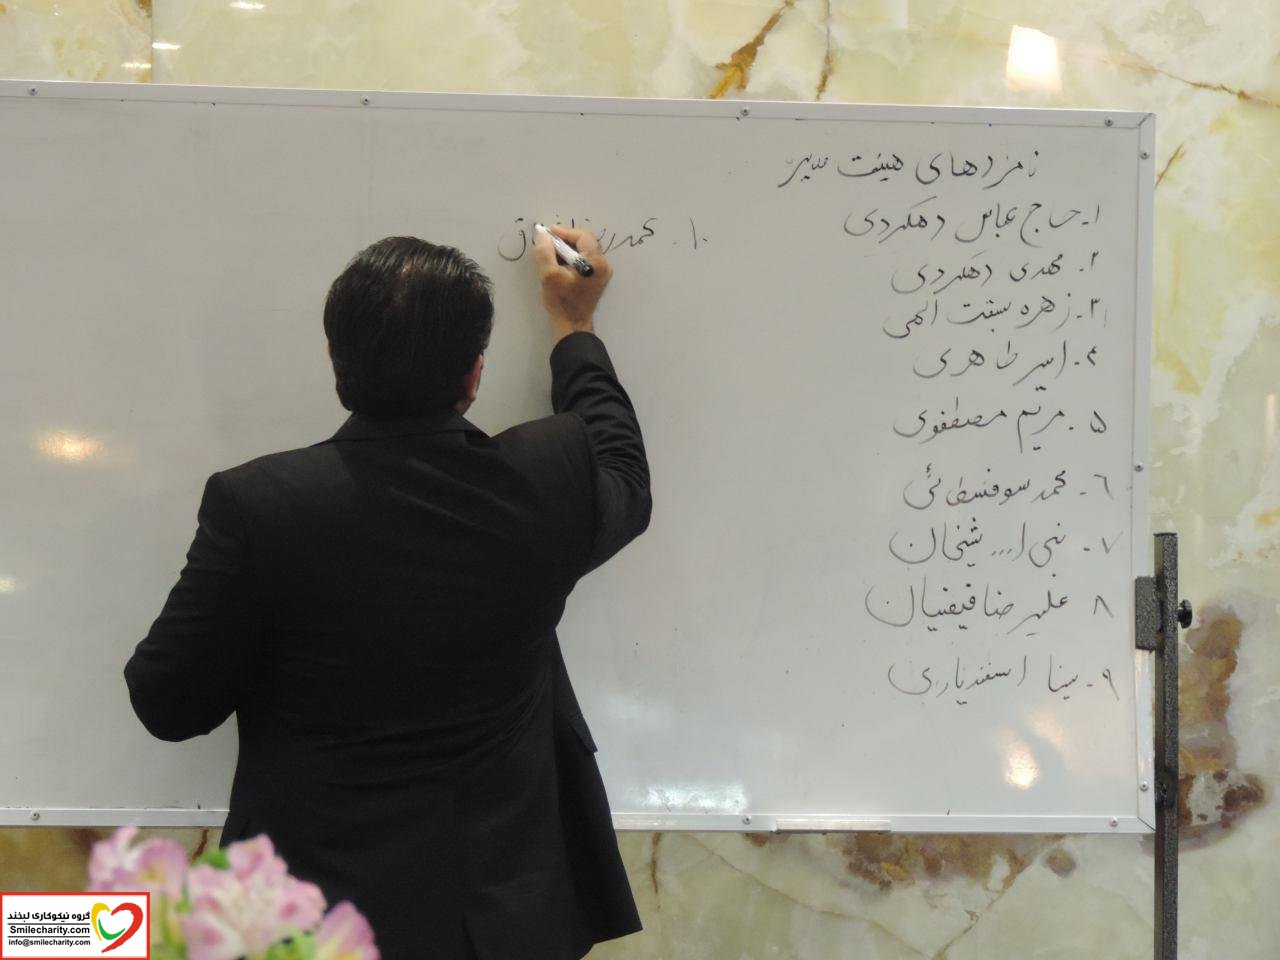 نامزدهای هیئت مدیره
۱- حاج عباس دهکردی
۲- مهدی دهکردی
۳- زهره سبقت الهی
۴- امیر طاهری
۵- مریم مصطفوی
۶- محمد سوفسطائی
۷- نبی ا... شیخان
۸ علیرضا فیضیان
۹- سینا اسفندیاری
۱۰- محمدرضا
گروه نیکوکاری لبخند
Smilecharity.com
info@smilecharity.com